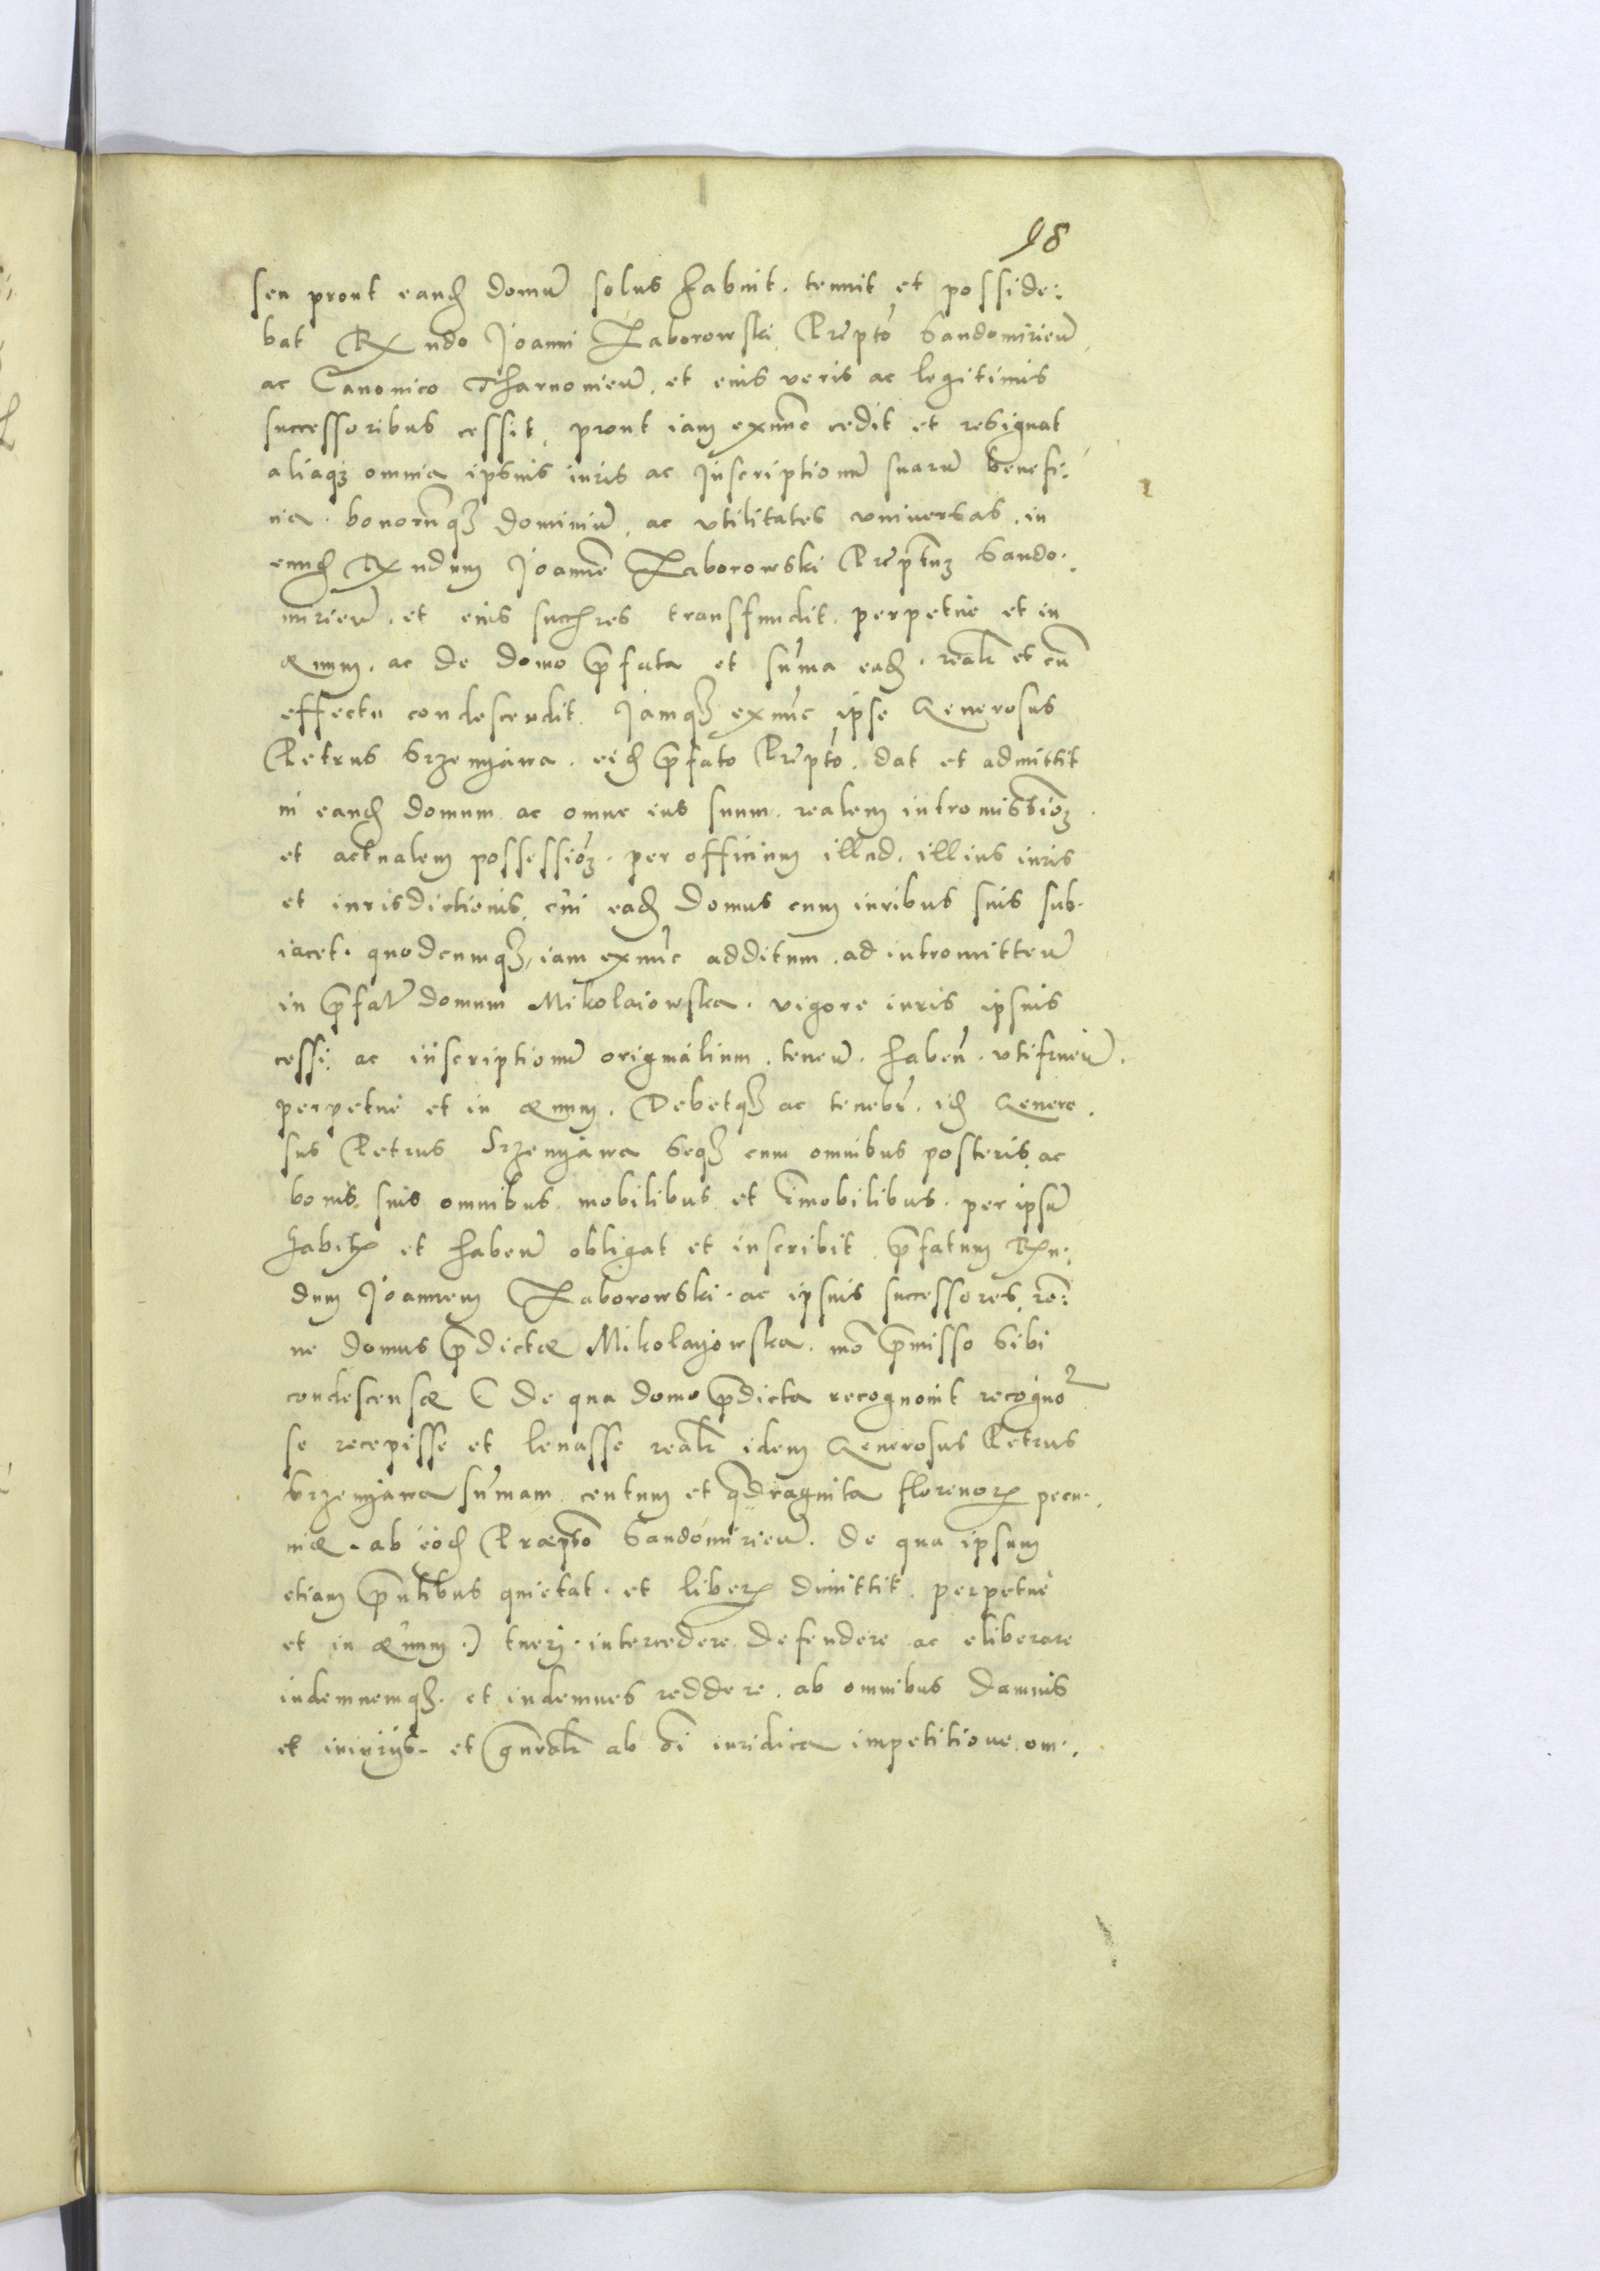 98
seu prout eand domū solus habuit. tenuit et posside:
bat Rndo Joanni Zaborowski Prepto Sandomirien̄
ac Canonico Tharnovien̄, et eius veris ac legitimis
successoribus cessit, prout iam exnunc cedit et resignat
aliaq3 omnia ipsius iuris ac Inscriptionū suarū benefi:
cia. bonorūq3 dominiū, ac vtilitates vniversas. in
eund Rndum Joannē Zaborowski Preptum Sando:
mirien̄. et eius succes̄res transfundit. perpetue et in
æuum. ac de domo p̄fata et sum̄a ead. realr et cū
effectu condescendit. Jamq3 exnūc ipse Generosus
Petrus Srzenyawa. eid p̄fato Prepto. dat et admittit
in eand domum ac omne ius suum. realem intromissiōe3
et actualem possessiōe3. per officium illud. illius iuris
et iurisdictionis, cui ead domus cum iuribus suis sub:
iacet. quodcumq3, iam exnūc additum. ad intromitten̄
in p̄fat̄ domum Mikolaiowska. vigore iuris ipsius
cessi: ac inscriptionū originalium. tenen̄. haben̄. vtifruen̄.
perpetue et in æuum. Debetq3 ac tenebr̄. id Genero:
sus Petrus Srzenyawa seq3 cum omnibus posteris ac
bonis suis omnibus mobilibus et īmobilibus. per ipsū
habitis et haben̄ obligat et inscribit p̄fatum Rn:
dum Joannem Zaborowski. ac ipsius successores, rōe:
ne domus p̄dictæ Mikolayowska. mō p̄misso sibi
condescensæ (De qua domo p̄dicta recognovit recogno
se recepisse et leuasse realr idem Generosus Petrus
Srzenyawa sum̄am centum et q̄draginta florenorum pecu:
niæ. ab eod Præpto Sandomirien̄. De qua ipsum
etiam p̄ntibus quietat. et liberum dimittit. perpetue
et in æuum.) tuerj. intercedere defendere ac eliberare
indemnemq3. et indemnes reddere. ab omnibus damnis
et iniurijs. et gn̄ralr ab ōi iuridica impetitione. om: